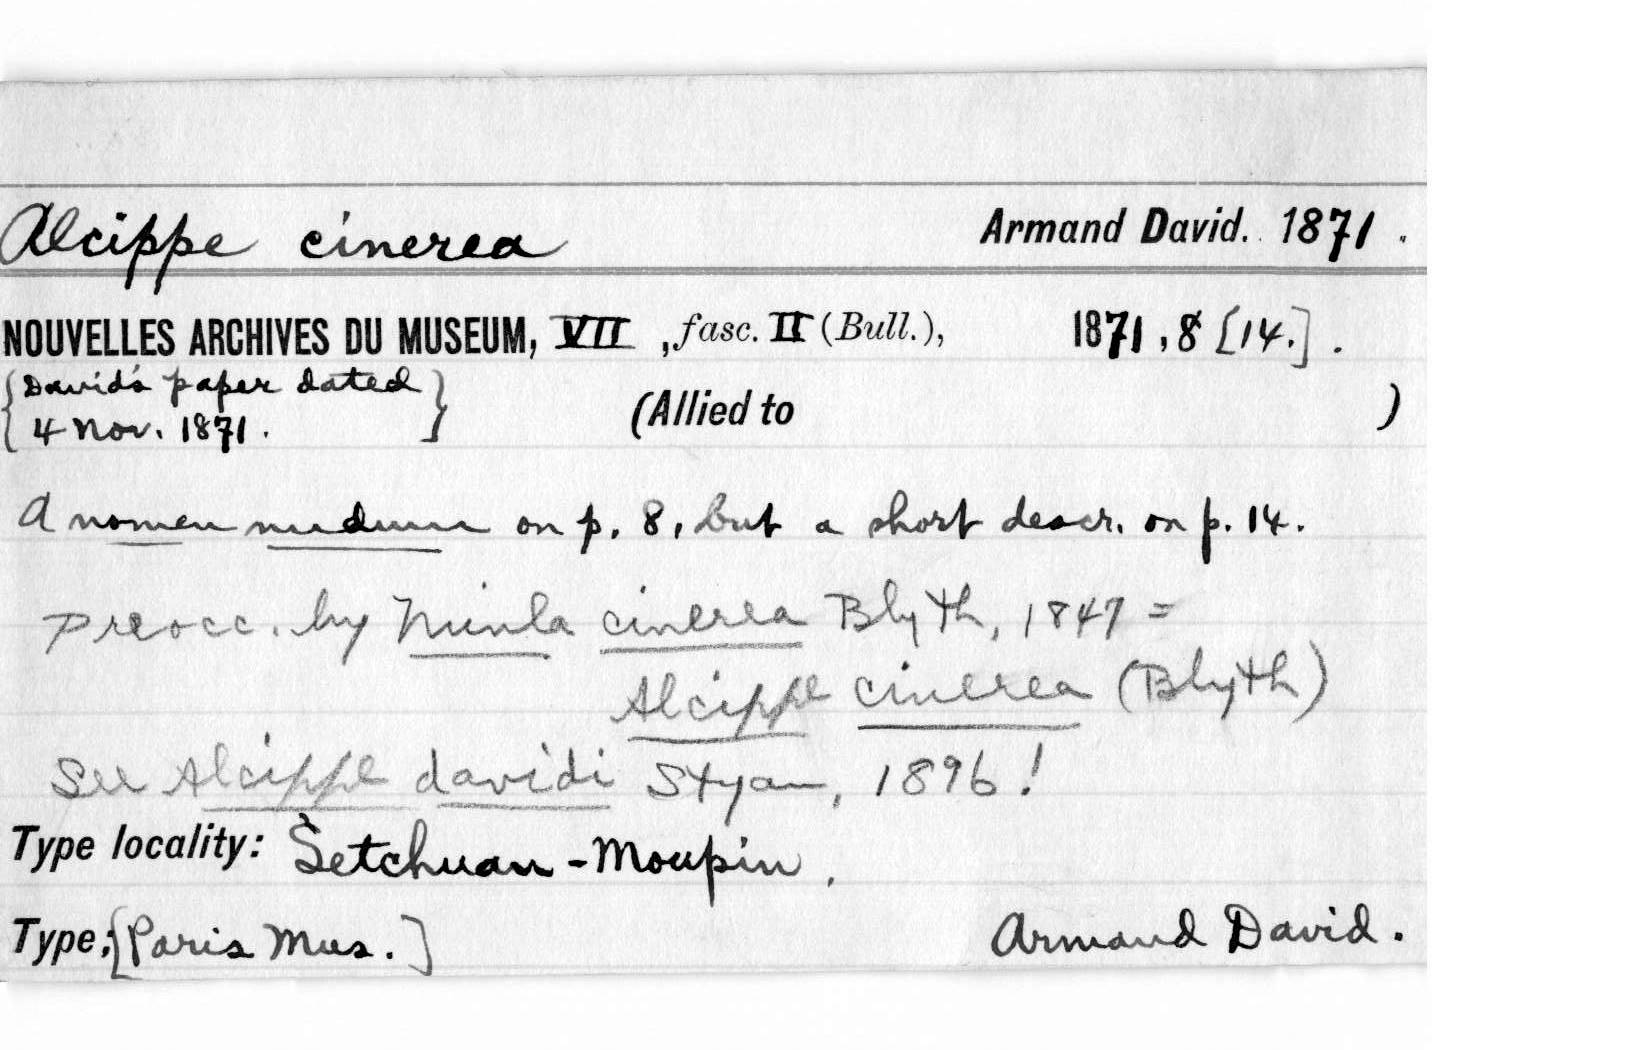 Alcippe cinerea Armand David. 1871.
NOUVELLES ARCHIVES DU MUSEUM, VII, fasc. II (Bull.), 1871, 8 [14.].
{David's paper dated
4 Nov. 1871.} (Allied to )
A nomen nudum on p. 8, but a short descr. on p. 14.
preocc. by Minla cinerea Blyth, 1847 =
Alcippe cinerea (Blyth)
See Alcippe davidi Styan, 1896!
Type locality: Setchuan - Moupin.
Type: [Paris Mus.] Armand David.